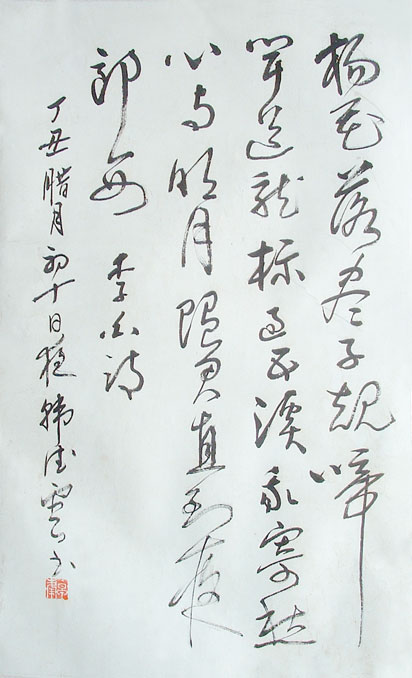 杨花落尽子规啼
闻道龙标过五溪我寄愁
心与明月随君直到夜
郎西 李白诗
丁丑腊月初十日 韩 书